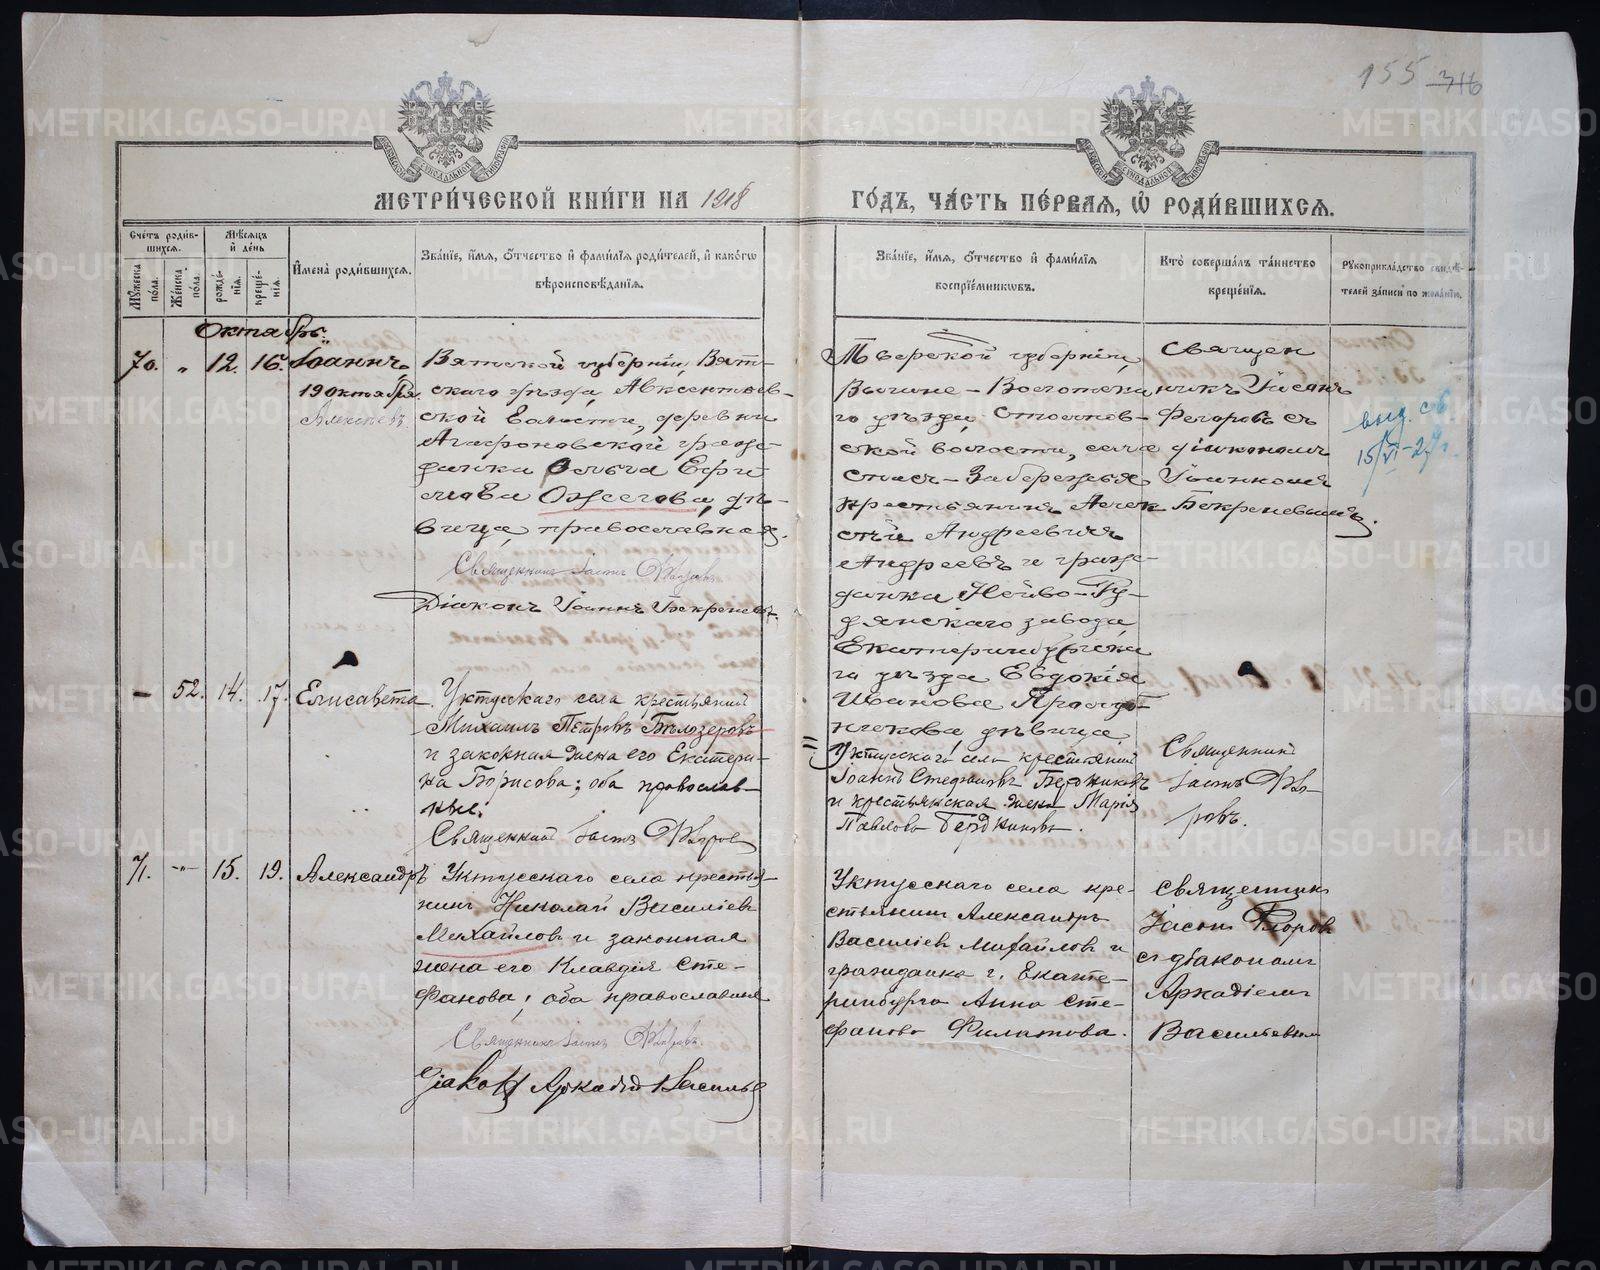 155 316
МЕТРИ́ЧЕСКОЙ КНИ́ГИ НА 1918
ГО́ДЪ, ЧА́СТЬ ПЕ́РВАЯ, Ѡ҆ РОДИ́ВШИХСЯ.
Сче́тъ роди́в-
шихся.
Мѣ́сяцъ
и҆ де́нь
Му́жеска
по́ла.
Же́нска
по́ла.
рожде́-
нія.
креще́-
нія.
И҆мена̀ роди́вшихся.
Зва́нїе, и҆́мя, ѻ҆́тчество и҆ фами́лїя роди́телей, и҆ како́гѡ
вѣроисповѣ́данїя.
Зва́нїе, и҆́мя, ѻ҆́тчество и҆ фами́лїя
воспрїе́мниковъ.
Кто̀ соверша́лъ та́инство
креще́нїя.
Рꙋкоприкла́дство свидѣ́-
телей за́писи по жела́нїю.
Октябрь:
70. " 12. 16. Іоаннъ,
19 октября.
Алексѣевъ
Вятской губерніи, Вят-
скаго уѣзда, Авксентьев-
ской волости, деревни
Агафоновской граж-
данка Ольга Ефи
мова Ожегова, дѣ-
вица, православная.
Священникъ Іасонъ Флоровъ
Діаконъ Іоаннъ Бекреневъ.
Тверской губерніи,
Вышне-Волоцка
го уѣзда, Столпов-
ской волости, села
Спасъ-Забережья
крестьянинъ Алек
сѣй Андреевичъ
Андреевъ и граж-
данка Нейво-Ру-
дянскаго завода,
Екатеринбургска
го уѣзда Евдокія
Иванова
дѣвица.
Священ
никъ Іасонъ
Флоровъ съ
діакономъ
Іоанномъ
Бекреневымъ.
выд. св
15/VI-27 г.
— 52. 14. 17. Елисавета.
Уктусскаго села крестьянинъ
Михаилъ Петровъ Бѣлозеровъ
и законная жена его Екатери-
на Борисова; оба православ-
ные.
Священникъ Іасонъ Флоровъ
Уктусскаго села крестьянинъ
Іоаннъ Стефановъ Бердниковъ
и крестьянская жена Марія
Павлова Бердникова.
Священникъ
Іасонъ Фло
ровъ.
71. -"- 15. 19. Александръ
Уктусскаго села крестья-
нинъ Николай Василіевъ
Михайловъ и законная
жена его Клавдія Сте-
фанова; оба православные
Священникъ Іасонъ Флоровъ.
Діаконъ Аркадій Васильев
Уктусскаго села кре-
стьянинъ Александръ
Василіевъ Михайловъ и
гражданка г. Екате-
ринбурга Анна Сте-
фанова Филатова.
Священникъ
Іасонъ Флоровъ
съ діакономъ
Аркадіемъ
Васильевым
METRIKI.GASO-URAL.RU